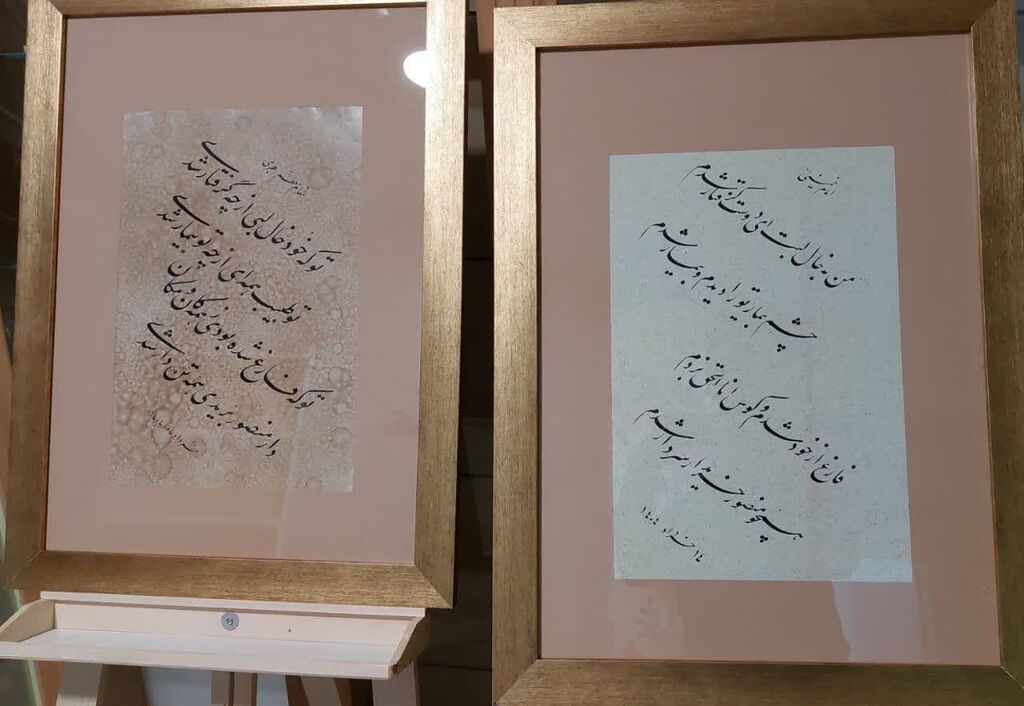 امام خمینی
من به خال لبت ای دوست گرفتار شدم
چشم بیمار تو را دیدم و بیمار شدم
فارغ از خود شدم و کوس انا الحق بزدم
همچو منصور خریدار سر دار شدم
تو که خود خال لبی از چه گرفتار شدی
تو طبیب همه‌ای از چه تو بیمار شدی
تو که فارغ شده بودی ز همه کان و مکان
دار منصور بریدی همه تن دار شدی